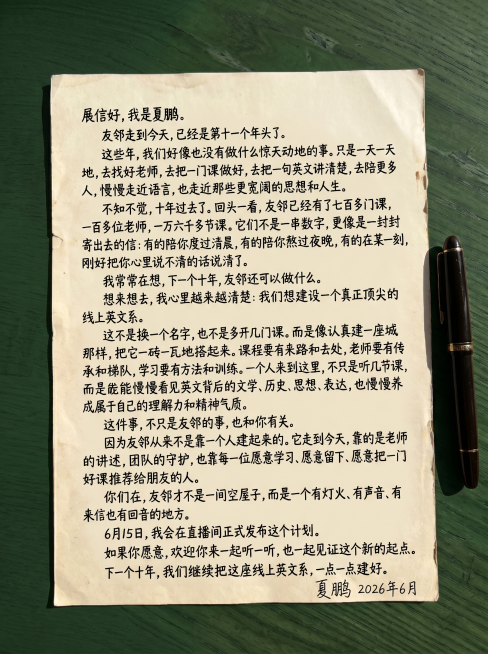 展信好，我是夏鹏。
友邻走到今天，已经是第十一个年头了。
这些年，我们好像也没有做什么惊天动地的事。只是一天一天
地，去找好老师，去把一门课做好，去把一句英文讲清楚，去陪更多
人，慢慢走近语言，也走近那些更宽阔的思想和人生。
不知不觉，十年过去了。回头一看，友邻已经有了七百多门课，
一百多位老师，一万六千多节课。它们不是一串数字，更像是一封封
寄出去的信：有的陪你度过清晨，有的陪你熬过夜晚，有的在某一刻，
刚好把你心里说不清的话说清了。
我常常在想，下一个十年，友邻还可以做什么。
想来想去，我心里越来越清楚：我们想建设一个真正顶尖的
线上英文系。
这不是换一个名字，也不是多开几门课。而是像认真建一座城
那样，把它一砖一瓦地搭起来。课程要有来路和去处，老师要有传
承和梯队，学习要有方法和训练。一个人来到这里，不只是听几节课，
而是能慢慢看见英文背后的文学、历史、思想、表达，也慢慢养
成属于自己的理解力和精神气质。
这件事，不只是友邻的事，也和你有关。
因为友邻从来不是靠一个人建起来的。它走到今天，靠的是老师
的讲述，团队的守护，也靠每一位愿意学习、愿意留下、愿意把一门
好课推荐给朋友的人。
你们在，友邻才不是一间空屋子，而是一个有灯火、有声音、有
来信也有回音的地方。
6月15日，我会在直播间正式发布这个计划。
如果你愿意，欢迎你来一起听一听，也一起见证这个新的起点。
下一个十年，我们继续把这座线上英文系，一点一点建好。
夏鹏 2026年6月